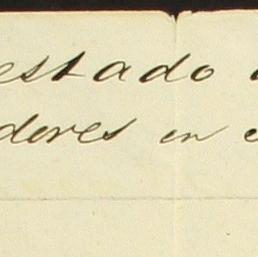 estado
dores en